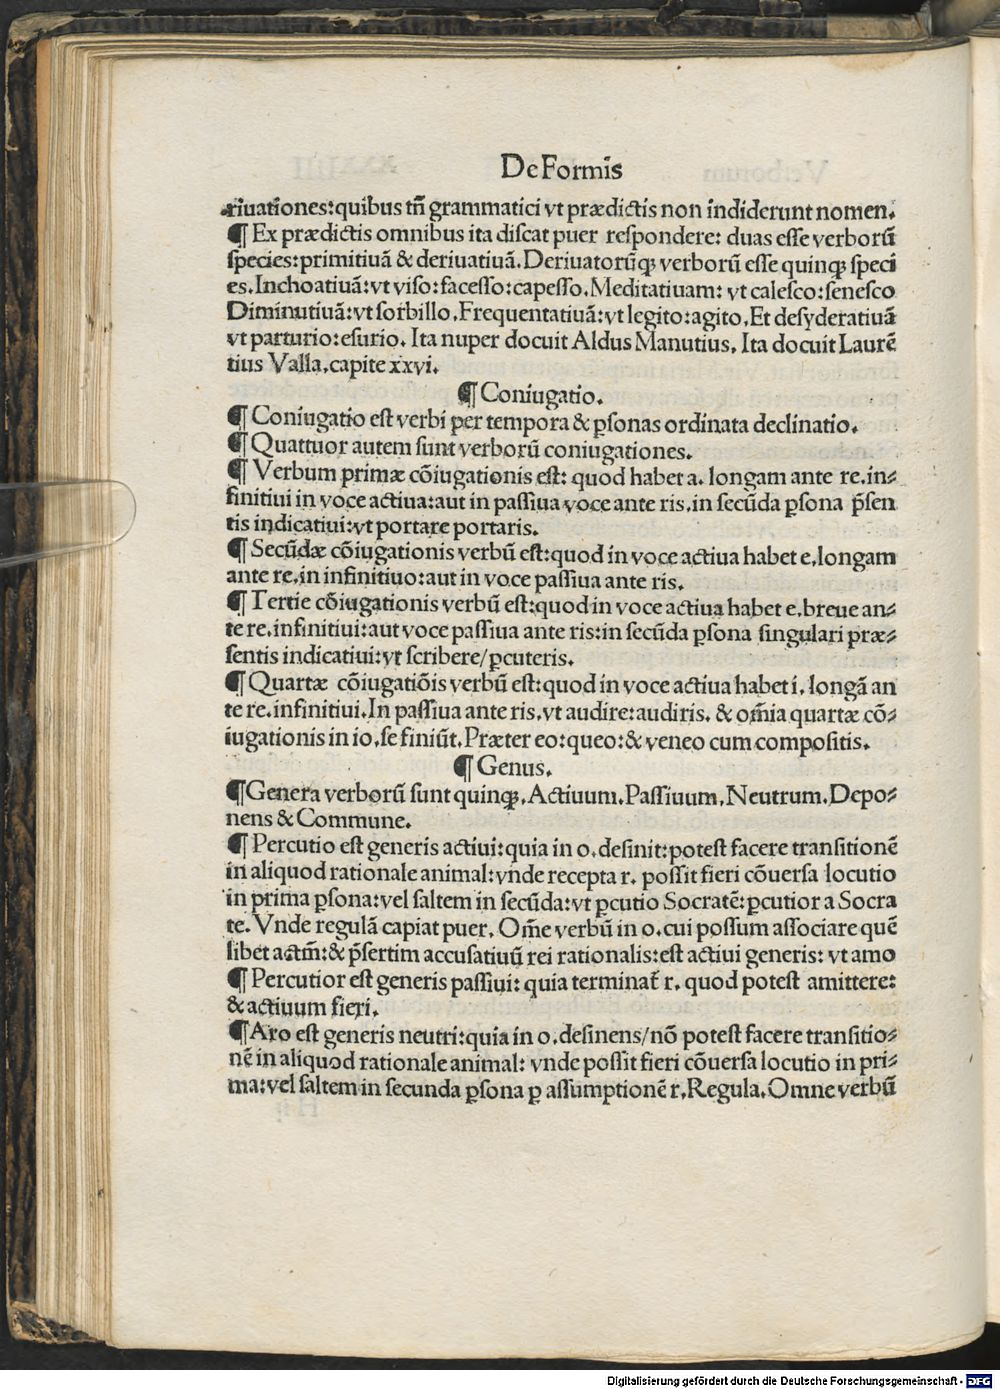 De Formis
riuationes:quibus tñ grammatici vt prædictis non indiderunt nomen.
¶ Ex prædictis omnibus ita discat puer respondere: duas esse verborũ
species:primitiuã & deriuatiuã.Deriuatorũq; verborũ esse quinq; speci
es.Inchoatiuã:vt viso:facesso:capesso.Meditatiuam: vt calesco:senesco
Diminutiuã:vt sorbillo.Frequentatiuã:vt legito:agito.Et desyderatiuã
vt parturio:esurio. Ita nuper docuit Aldus Manutius. Ita docuit Laurẽ
tius Valla.capite xxvi.
¶ Coniugatio.
¶ Coniugatio est verbi per tempora & ꝑsonas ordinata declinatio.
¶ Quattuor autem sunt verborũ coniugationes.
¶ Verbum primæ cõiugationis est: quod habet a. longam ante re.in⸗
finitiui in voce actiua:aut in passiua voce ante ris.in secũda ꝑsona p̃sen
tis indicatiui:vt portare portaris.
¶ Secũdæ cõiugationis verbũ est:quod in voce actiua habet e.longam
ante re.in infinitiuo:aut in voce passiua ante ris.
¶ Tertie cõiugationis verbũ est:quod in voce actiua habet e.breue an⸗
te re.infinitiui:aut voce passiua ante ris:in secũda ꝑsona singulari præ⸗
sentis indicatiui:vt scribere/ꝑcuteris.
¶ Quartæ cõiugatiõis verbũ est:quod in voce actiua habet i. longã an
te re.infinitiui.In passiua ante ris.vt audire:audiris. & om̃ia quartæ cõ⸗
iugationis in io.se finiũt.Præter eo:queo:& veneo cum compositis.
¶ Genus.
¶ Genera verborũ sunt quinq;.Actiuum.Passiuum.Neutrum.Depo⸗
nens & Commune.
¶ Percutio est generis actiui:quia in o.desinit:potest facere transitionẽ
in aliquod rationale animal:vnde recepta r. possit fieri cõuersa locutio
in prima ꝑsona:vel saltem in secũda:vt ꝑcutio Socratẽ:ꝑcutior a Socra
te. Vnde regulã capiat puer. Om̃e verbũ in o.cui possum associare quẽ
libet actm̃:& p̃sertim accusatiuũ rei rationalis:est actiui generis: vt amo
¶ Percutior est generis passiui: quia terminat̃ r. quod potest amittere:
& actiuum fieri.
¶ Aro est generis neutri:quia in o.desinens/nõ potest facere transitio⸗
nẽ in aliquod rationale animal: vnde possit fieri cõuersa locutio in pri⸗
ma:vel saltem in secunda ꝑsona ꝑ assumptionẽ r.Regula.Omne verbũ
Digitalisierung gefördert durch die Deutsche Forschungsgemeinschaft - DFG